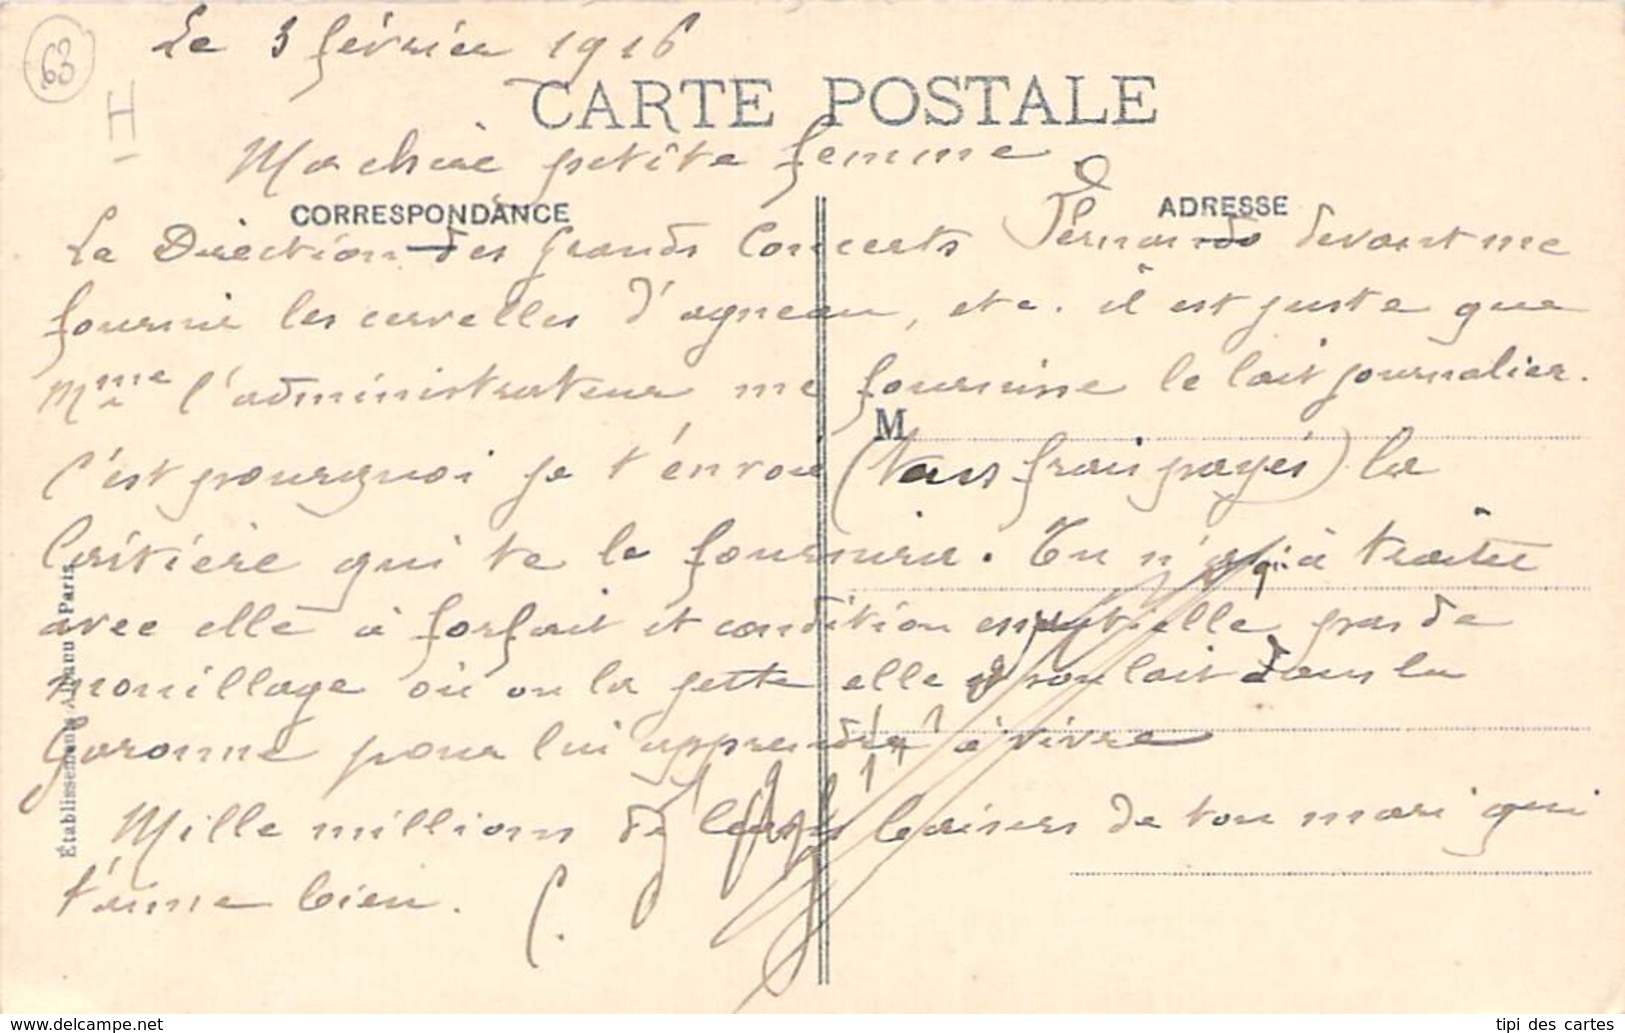 63
H
Le 3 février 1916
CARTE POSTALE
Ma chère petite femme
CORRESPONDANCE
ADRESSE
La Direction des Grands Concerts Fernando devant me
fournir les cervelles d'agneau, etc. il est juste que
Mme l'administrateur me fournisse le lait journalier.
C'est pourquoi je t'envoie (tous frais payés) la
M
laitière qui te le fournira. Tu n'as qu'à traiter
avec elle à forfait et condition essentielle pas de
mouillage où on la jette elle et son lait dans la
Garonne pour lui apprendre à vivre
Mille millions de bons baisers de ton mari qui
t'aime bien.
Établissements Alpanu Paris
tipi des cartes